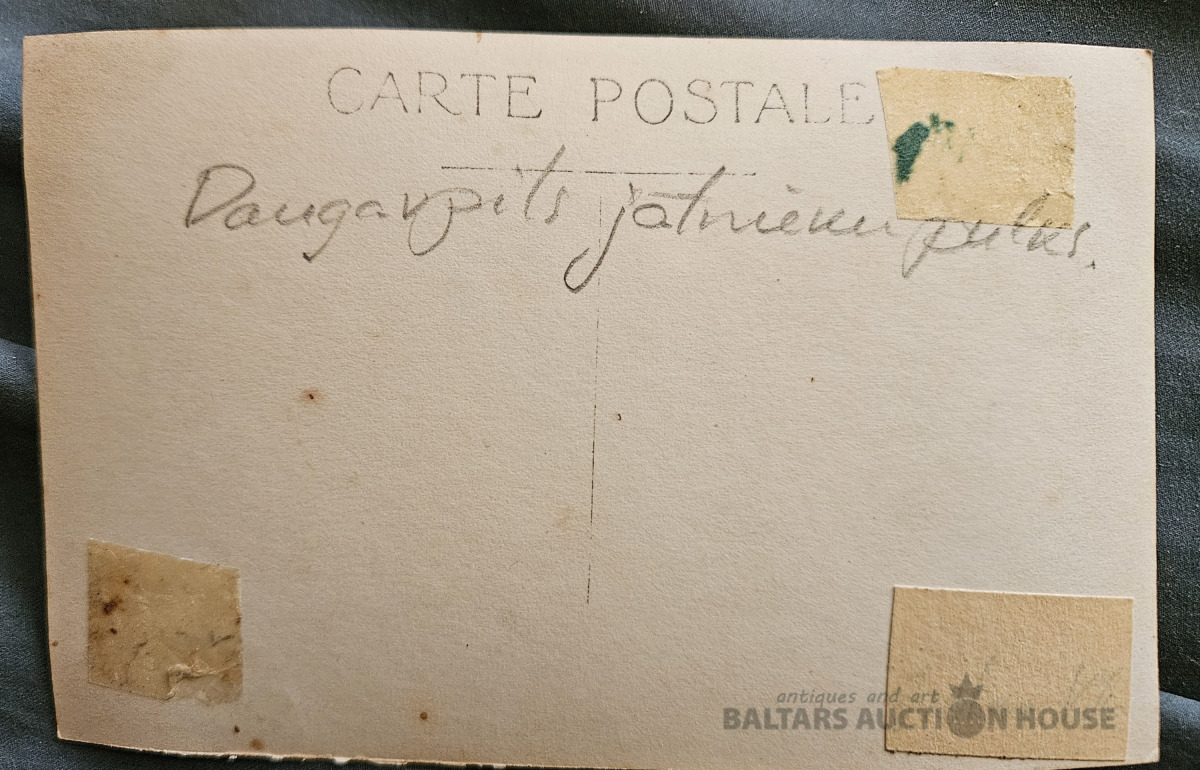 CARTE POSTALE
Daugavpils jātnieku pulks.
antiques and art
BALTARS AUCTION HOUSE